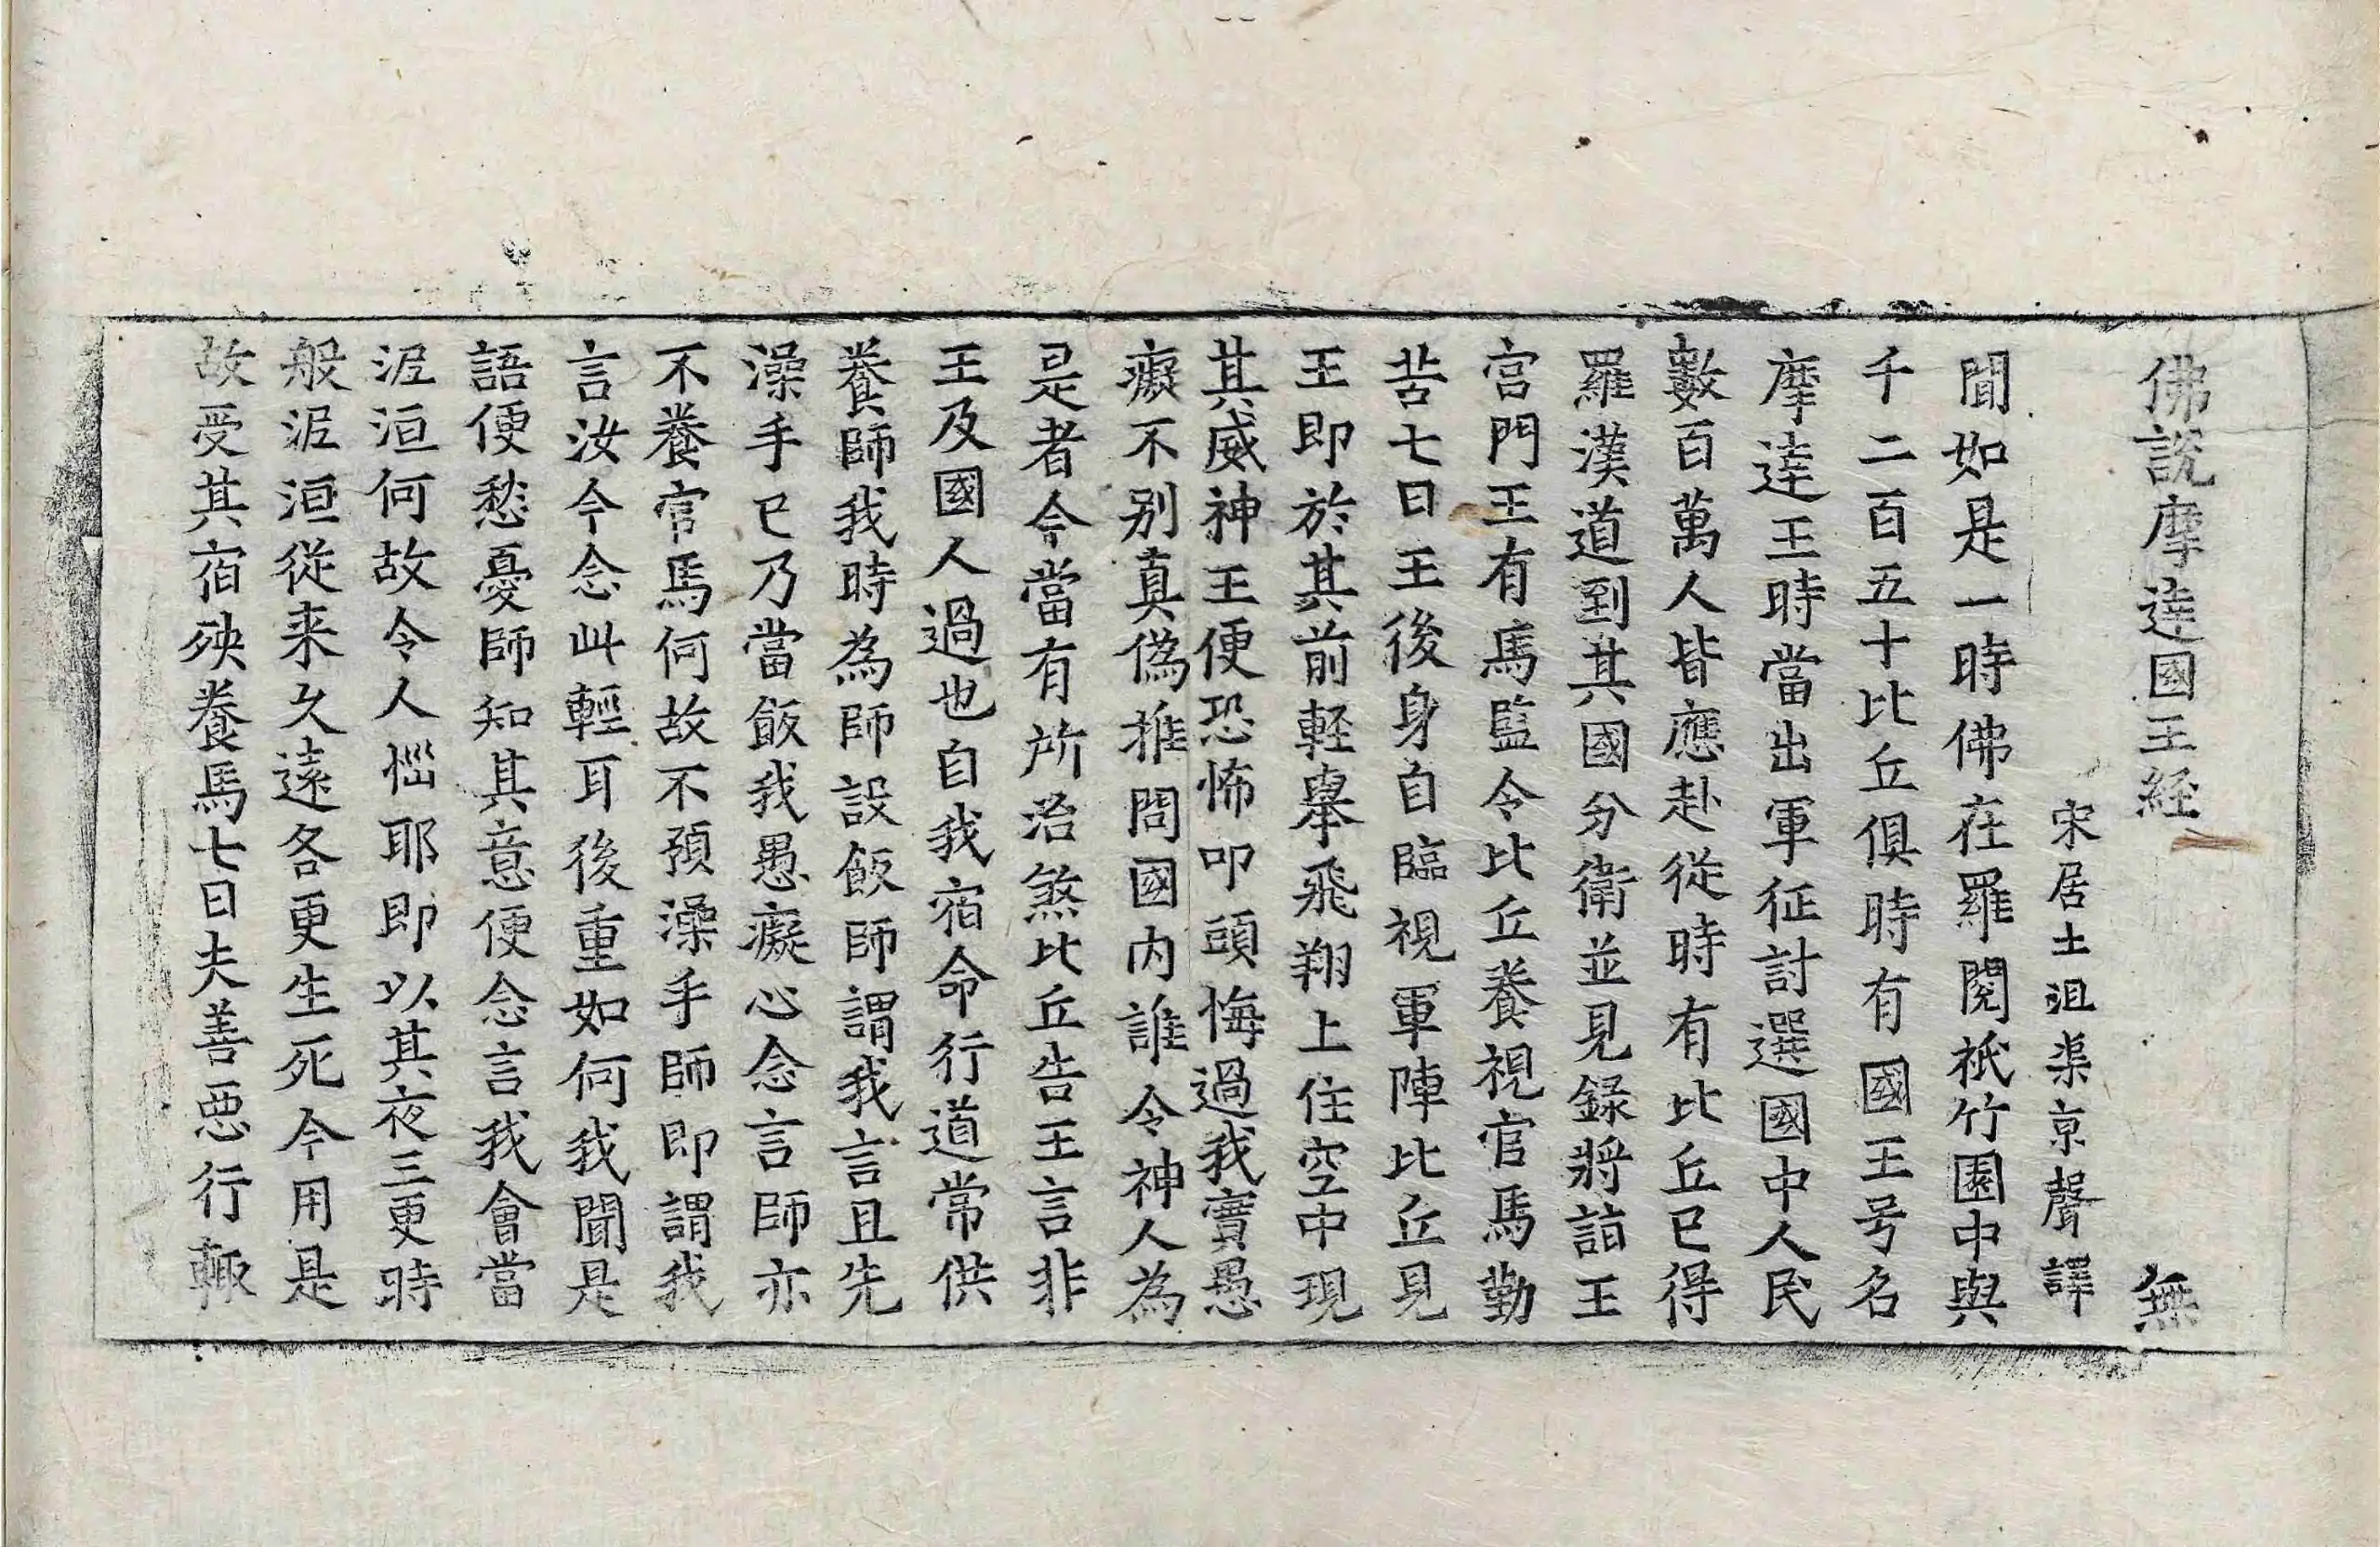 佛說摩達國王経 無
宋居士沮渠京聲譯
聞如是一時佛在羅閱祇竹園中與
千二百五十比丘俱時有國王号名
摩達王時當出軍征討選國中人民
數百萬人皆應赴從時有比丘已得
羅漢道到其國分衛並見錄將詣王
宫門王有馬監令比丘養視官馬勤
苦七日王後身自臨視軍陣比丘見
王即於其前輕舉飛翔上住空中現
其威神王便恐怖叩頭悔過我實愚
癡不別真偽推問國内誰令神人為
是者今當有所治煞比丘告王言非
王及國人過也自我宿命行道常供
養師我時為師設飯師謂我言且先
澡手已乃當飯我愚癡心念言師亦
不養官馬何故不預澡手師即謂我
言汝今念此輕耳後重如何我聞是
語便愁憂師知其意便念言我會當
泥洹何故令人惱耶即以其夜三更時
般泥洹從来久遠各更生死今用是
故受其宿殃養馬七日夫善惡行輙